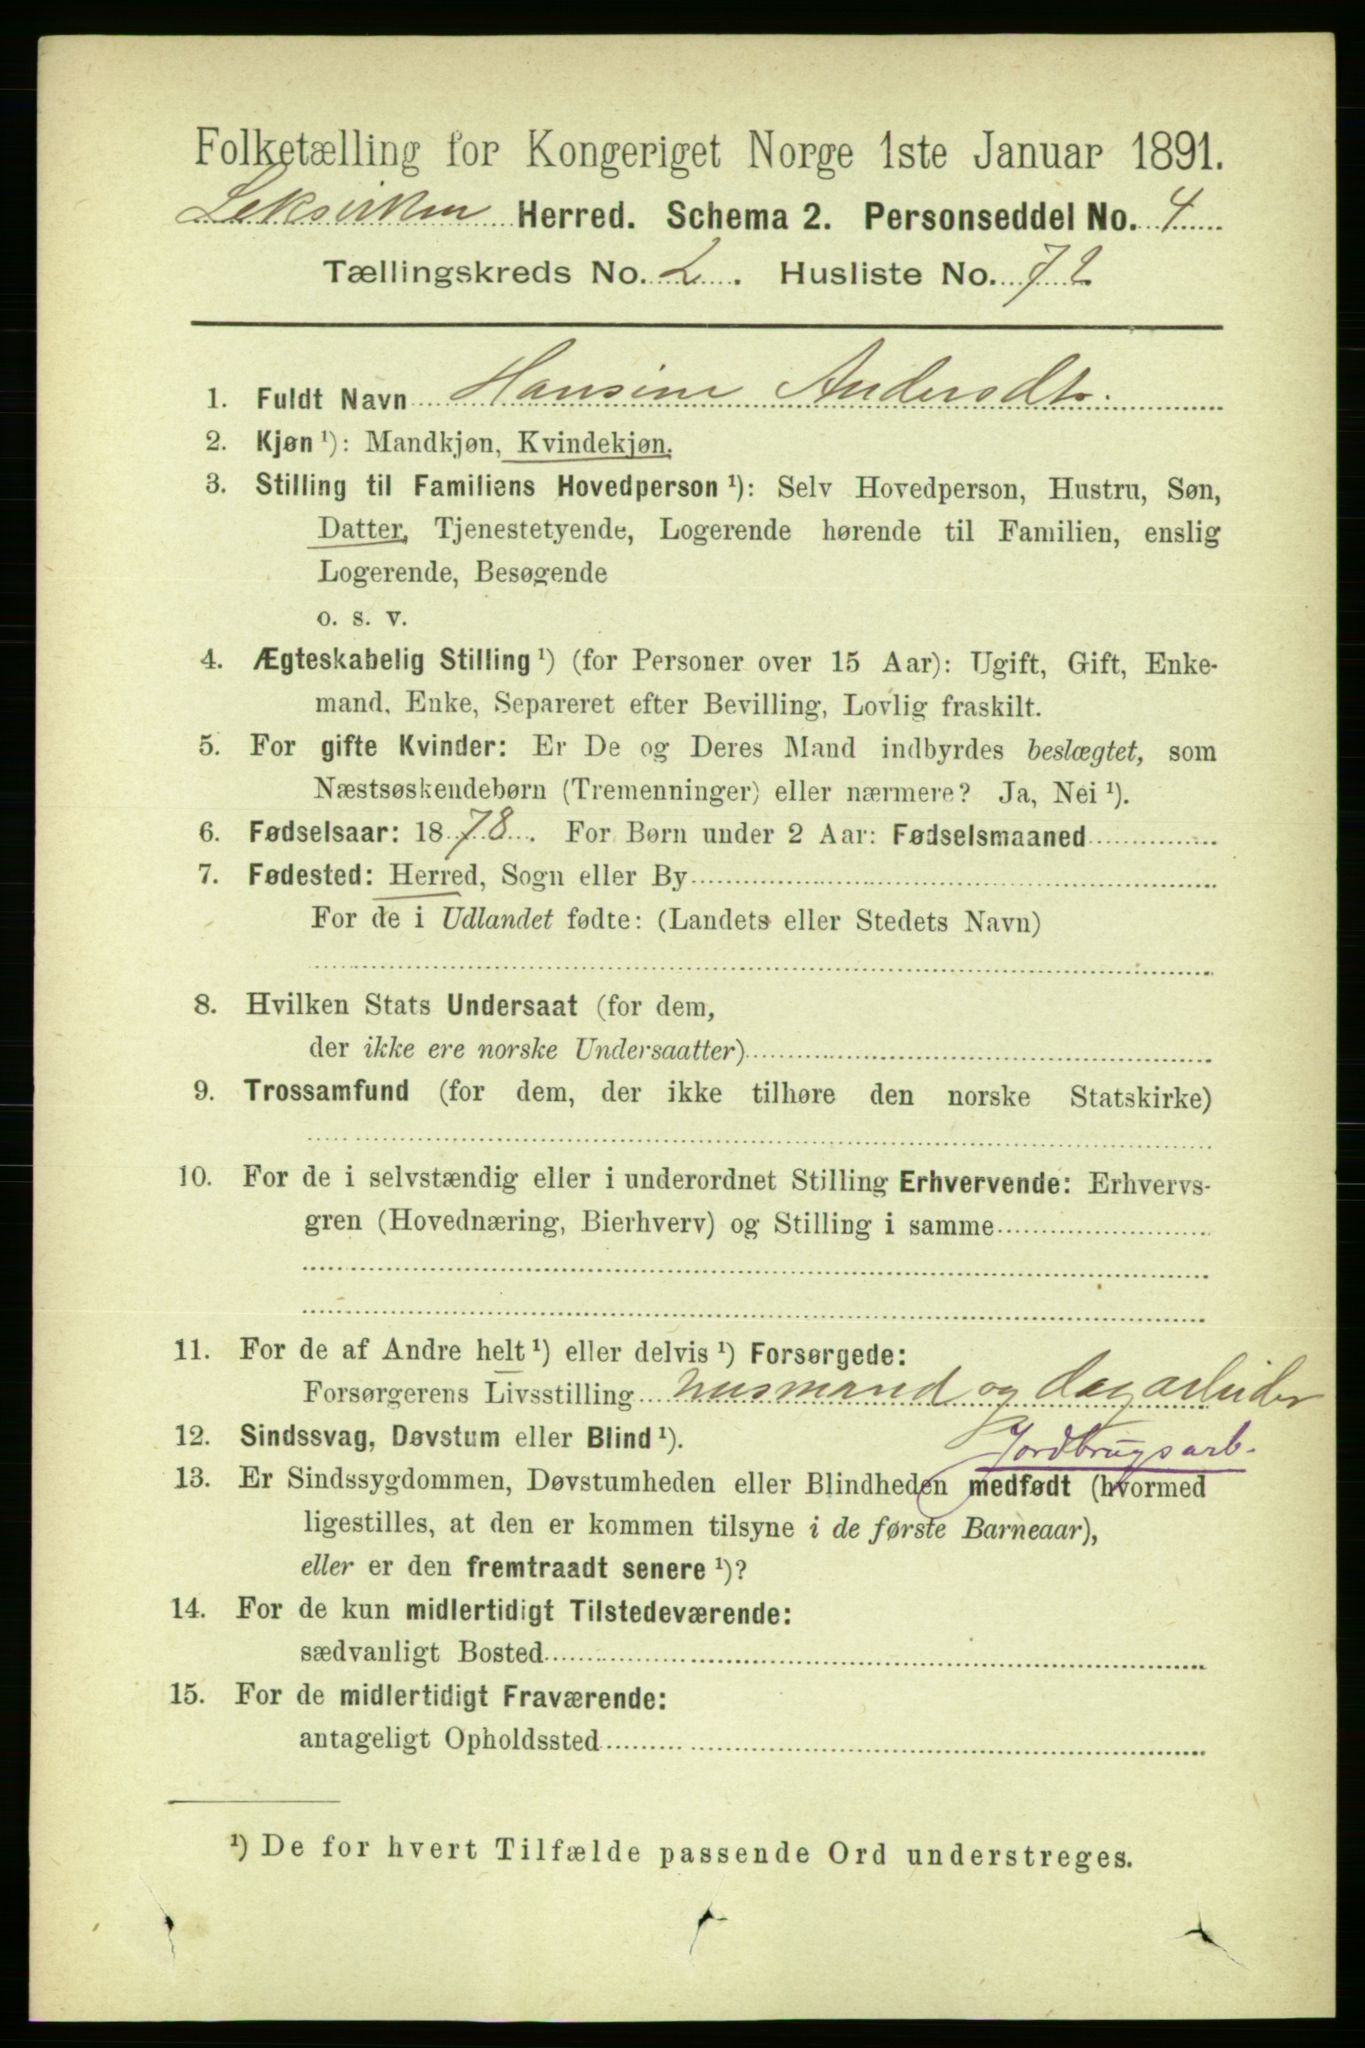 Folketælling for Kongeriget Norge 1ste Januar 1891.
Leksviken Herred. Schema 2. Personseddel No. 4
Tællingskreds No. 2. Husliste No. 72
1. Fuldt Navn Hansine Andersdtr.
2. Kjøn ¹): Mandkjøn, Kvindekjøn.
3. Stilling til Familiens Hovedperson ¹): Selv Hovedperson, Hustru, Søn,
Datter, Tjenestetyende, Logerende hørende til Familien, enslig
Logerende, Besøgende
o. s. v.
4. Ægteskabelig Stilling ¹) (for Personer over 15 Aar): Ugift, Gift, Enke-
mand, Enke, Separeret efter Bevilling, Lovlig fraskilt.
5. For gifte Kvinder: Er De og Deres Mand indbyrdes beslægtet, som
Næstsøskendebørn (Tremenninger) eller nærmere? Ja, Nei ¹).
6. Fødselsaar: 1878. For Børn under 2 Aar: Fødselsmaaned
7. Fødested: Herred, Sogn eller By
For de i Udlandet fødte: (Landets eller Stedets Navn)
8. Hvilken Stats Undersaat (for dem,
der ikke ere norske Undersaatter)
9. Trossamfund (for dem, der ikke tilhøre den norske Statskirke)
10. For de i selvstændig eller i underordnet Stilling Erhvervende: Erhvervs-
gren (Hovednæring, Bierhverv) og Stilling i samme
11. For de af Andre helt ¹) eller delvis ¹) Forsørgede:
Forsørgerens Livsstilling husmand og dagarbeider
12. Sindssvag, Døvstum eller Blind ¹). Jordbrugsarb.
13. Er Sindssygdommen, Døvstumheden eller Blindheden medfødt (hvormed
ligestilles, at den er kommen tilsyne i de første Barneaar),
eller er den fremtraadt senere ¹)?
14. For de kun midlertidigt Tilstedeværende:
sædvanligt Bosted
15. For de midlertidigt Fraværende:
antageligt Opholdssted
¹) De for hvert Tilfælde passende Ord understreges.